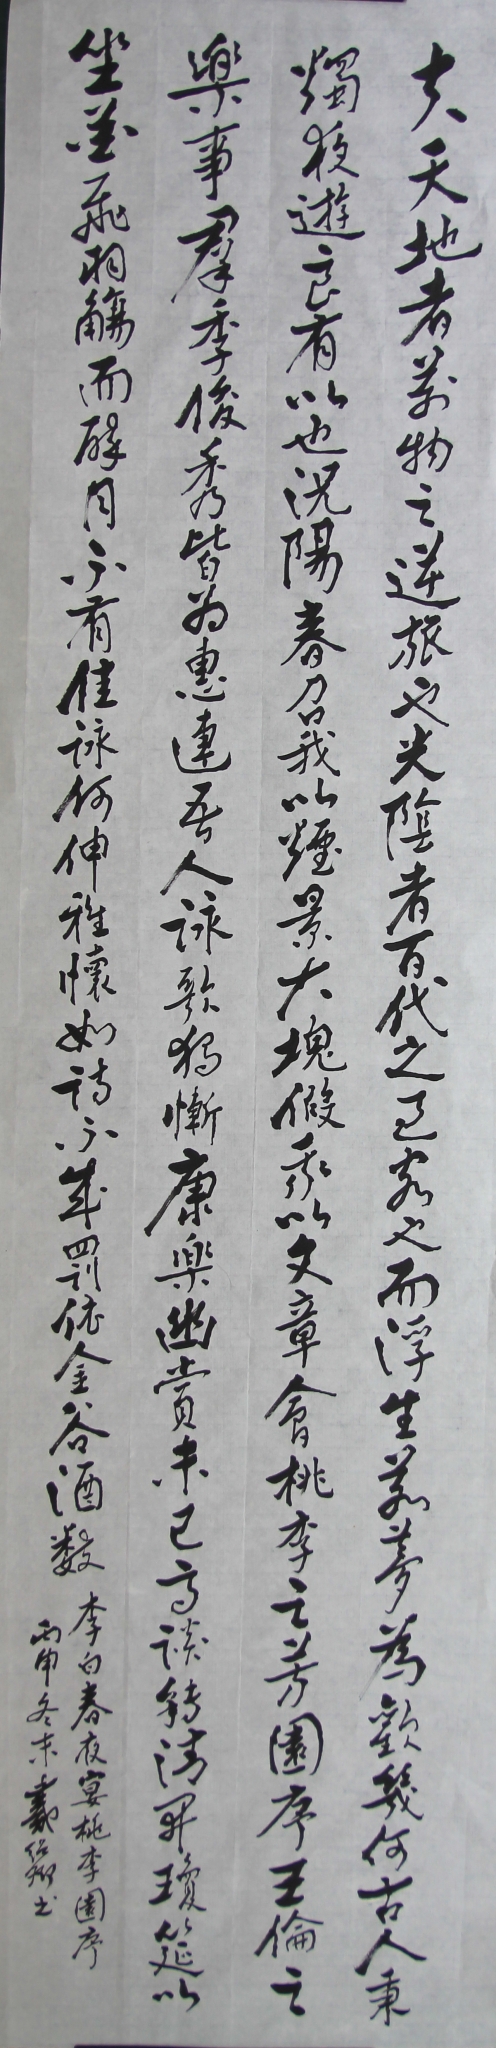 夫天地者萬物之逆旅也光陰者百代之過客也而浮生若夢為歡幾何古人秉
燭夜遊良有以也況陽春召我以煙景大塊假我以文章會桃李之芳園序天倫之
樂事羣季俊秀皆为惠連吾人詠歌獨慚康樂幽賞未已高談轉清開瓊筵以
坐花飛羽觴而醉月不有佳詠何伸雅懷如詩不成罰依金谷酒数
李白春夜宴桃李園序
丙申冬末戴书